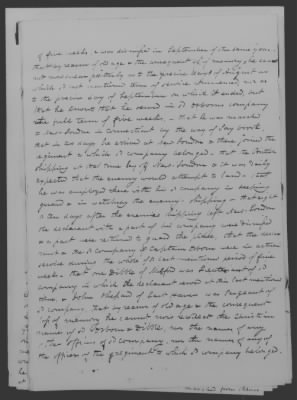 of five weeks, & was dismissed in September of the same year.
that by reason of old age & the consequent loss of memory, he can
not now swear positively as to the precise days of August on
which said last mentioned term of service commenced, nor as
to the precise day of September on which it ended, but
that he knows that he served in sd Osborns company
the full term of five weeks. – that he was marched
to New London in Connecticut by the way of Say brook
that in days he arrived at New London & there joined the
regiment to which sd company belonged. that the British
shipping at that time lay off New London & it was daily
expected that the enemy would attempt to land – that
he was employed there with his sd company in keeping
guard & in watching the enemy's shipping – that eight
or ten days after the enemies shipping left New London
the declarant with a part of his company was dismissed
& a part were retained to guard the place, that the decla
rant & the sd company & Captain Osborn were in active
service during the whole of sd last mentioned period of five
weeks. that one Dibble of Milford was Lieutenant of sd
company in which the declarant served at the last mentioned
time, & John Shepherd of East Haven was sergeant of
sd company. that by reason of old age & the consequent
loss of memory he cannot now recollect the Christian
names of sd Osborn & Dibble, nor the names of any
other officers of sd company, nor the names of any of
the officers of the regiment to which sd company belonged.
marched from